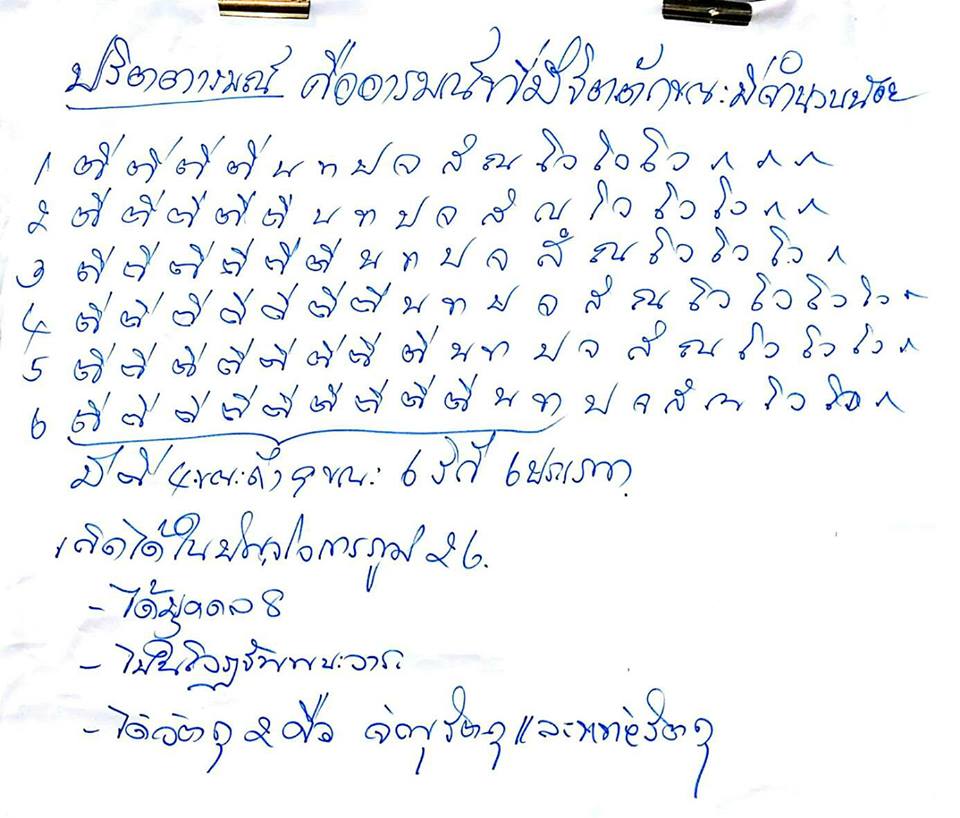 ปริตตารมณ์ คืออารมณ์ที่มีจิตตักขณะมีจำนวนน้อย
1 ตี ตี ตี ตี น ท ป จ สํ ณ โว โว โว ^ ^ ^
๒ ตี ตี ตี ตี ตี น ท ป จ สํ ณ โว โว โว ^ ^
๓ ตี ตี ตี ตี ตี ตี น ท ป จ สํ ณ โว โว โว ^
4 ตี ตี ตี ตี ตี ตี ตี น ท ป จ สํ ณ โว โว โว โว ^
5 ตี ตี ตี ตี ตี ตี ตี ตี น ท ป จ สํ ณ โว โว โว ^
6 ตี ตี ตี ตี ตี ตี ตี ตี ตี น ท ป จ สํ ณ โว โว ^
มีตี ๔ขณะถึง ๙ขณะ 6 วิถี 6ประเภท
เกิดได้ในปัญจโวการภูมิ ๒6.
- ได้บุคคล 8
- เป็นโวฏฐัพพนะวาระ
- ได้วัตถุ ๒ คือ จักขุวัตถุ และหทัยวัตถุ